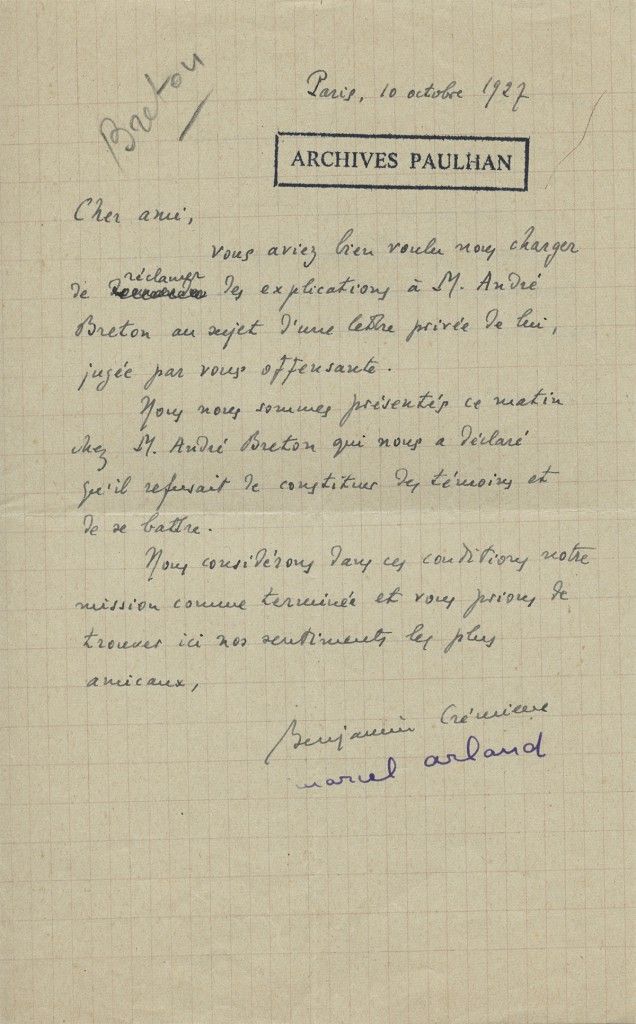 Breton
Paris, 10 octobre 1927
ARCHIVES PAULHAN
Cher ami,
vous aviez bien voulu nous charger
réclamer
de des explications à M. André
Breton au sujet d'une lettre privée de lui,
jugée par vous offensante.
Nous nous sommes présentés ce matin
chez M. André Breton qui nous a déclaré
qu'il refusait de constituer des témoins et
de se battre.
Nous considérons dans ces conditions notre
mission comme terminée et vous prions de
trouver ici nos sentiments les plus
amicaux,
Benjamin Crémieux
marcel arland